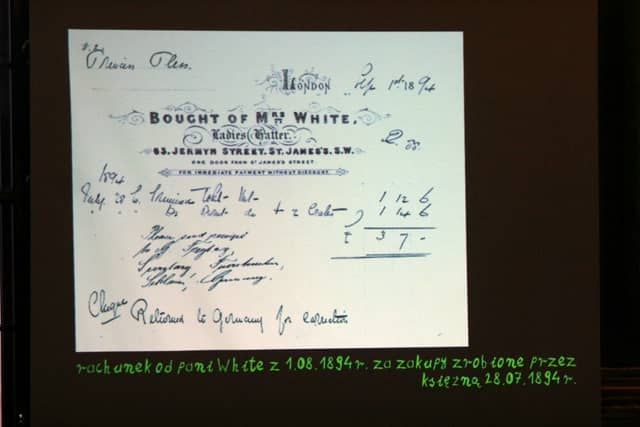 Princess Pless.
LONDON 1st 1894
BOUGHT OF MRS WHITE,
Ladies Hatter.
63, JERMYN STREET, ST. JAMES'S. S.W.
ONE DOOR FROM ST JAMES'S STREET.
FOR IMMEDIATE PAYMENT WITHOUT DISCOUNT.
1894
July 28 1 12 6
Do do + 2 1 14 6
£ 3 7 -
Please send receipt
to
Secretary
Germany.
Cheque
Returned to Germany for correction
rachunek od pani White z 1.08.1894r. za zakupy zrobione przez
księżną 28.07.1894r.